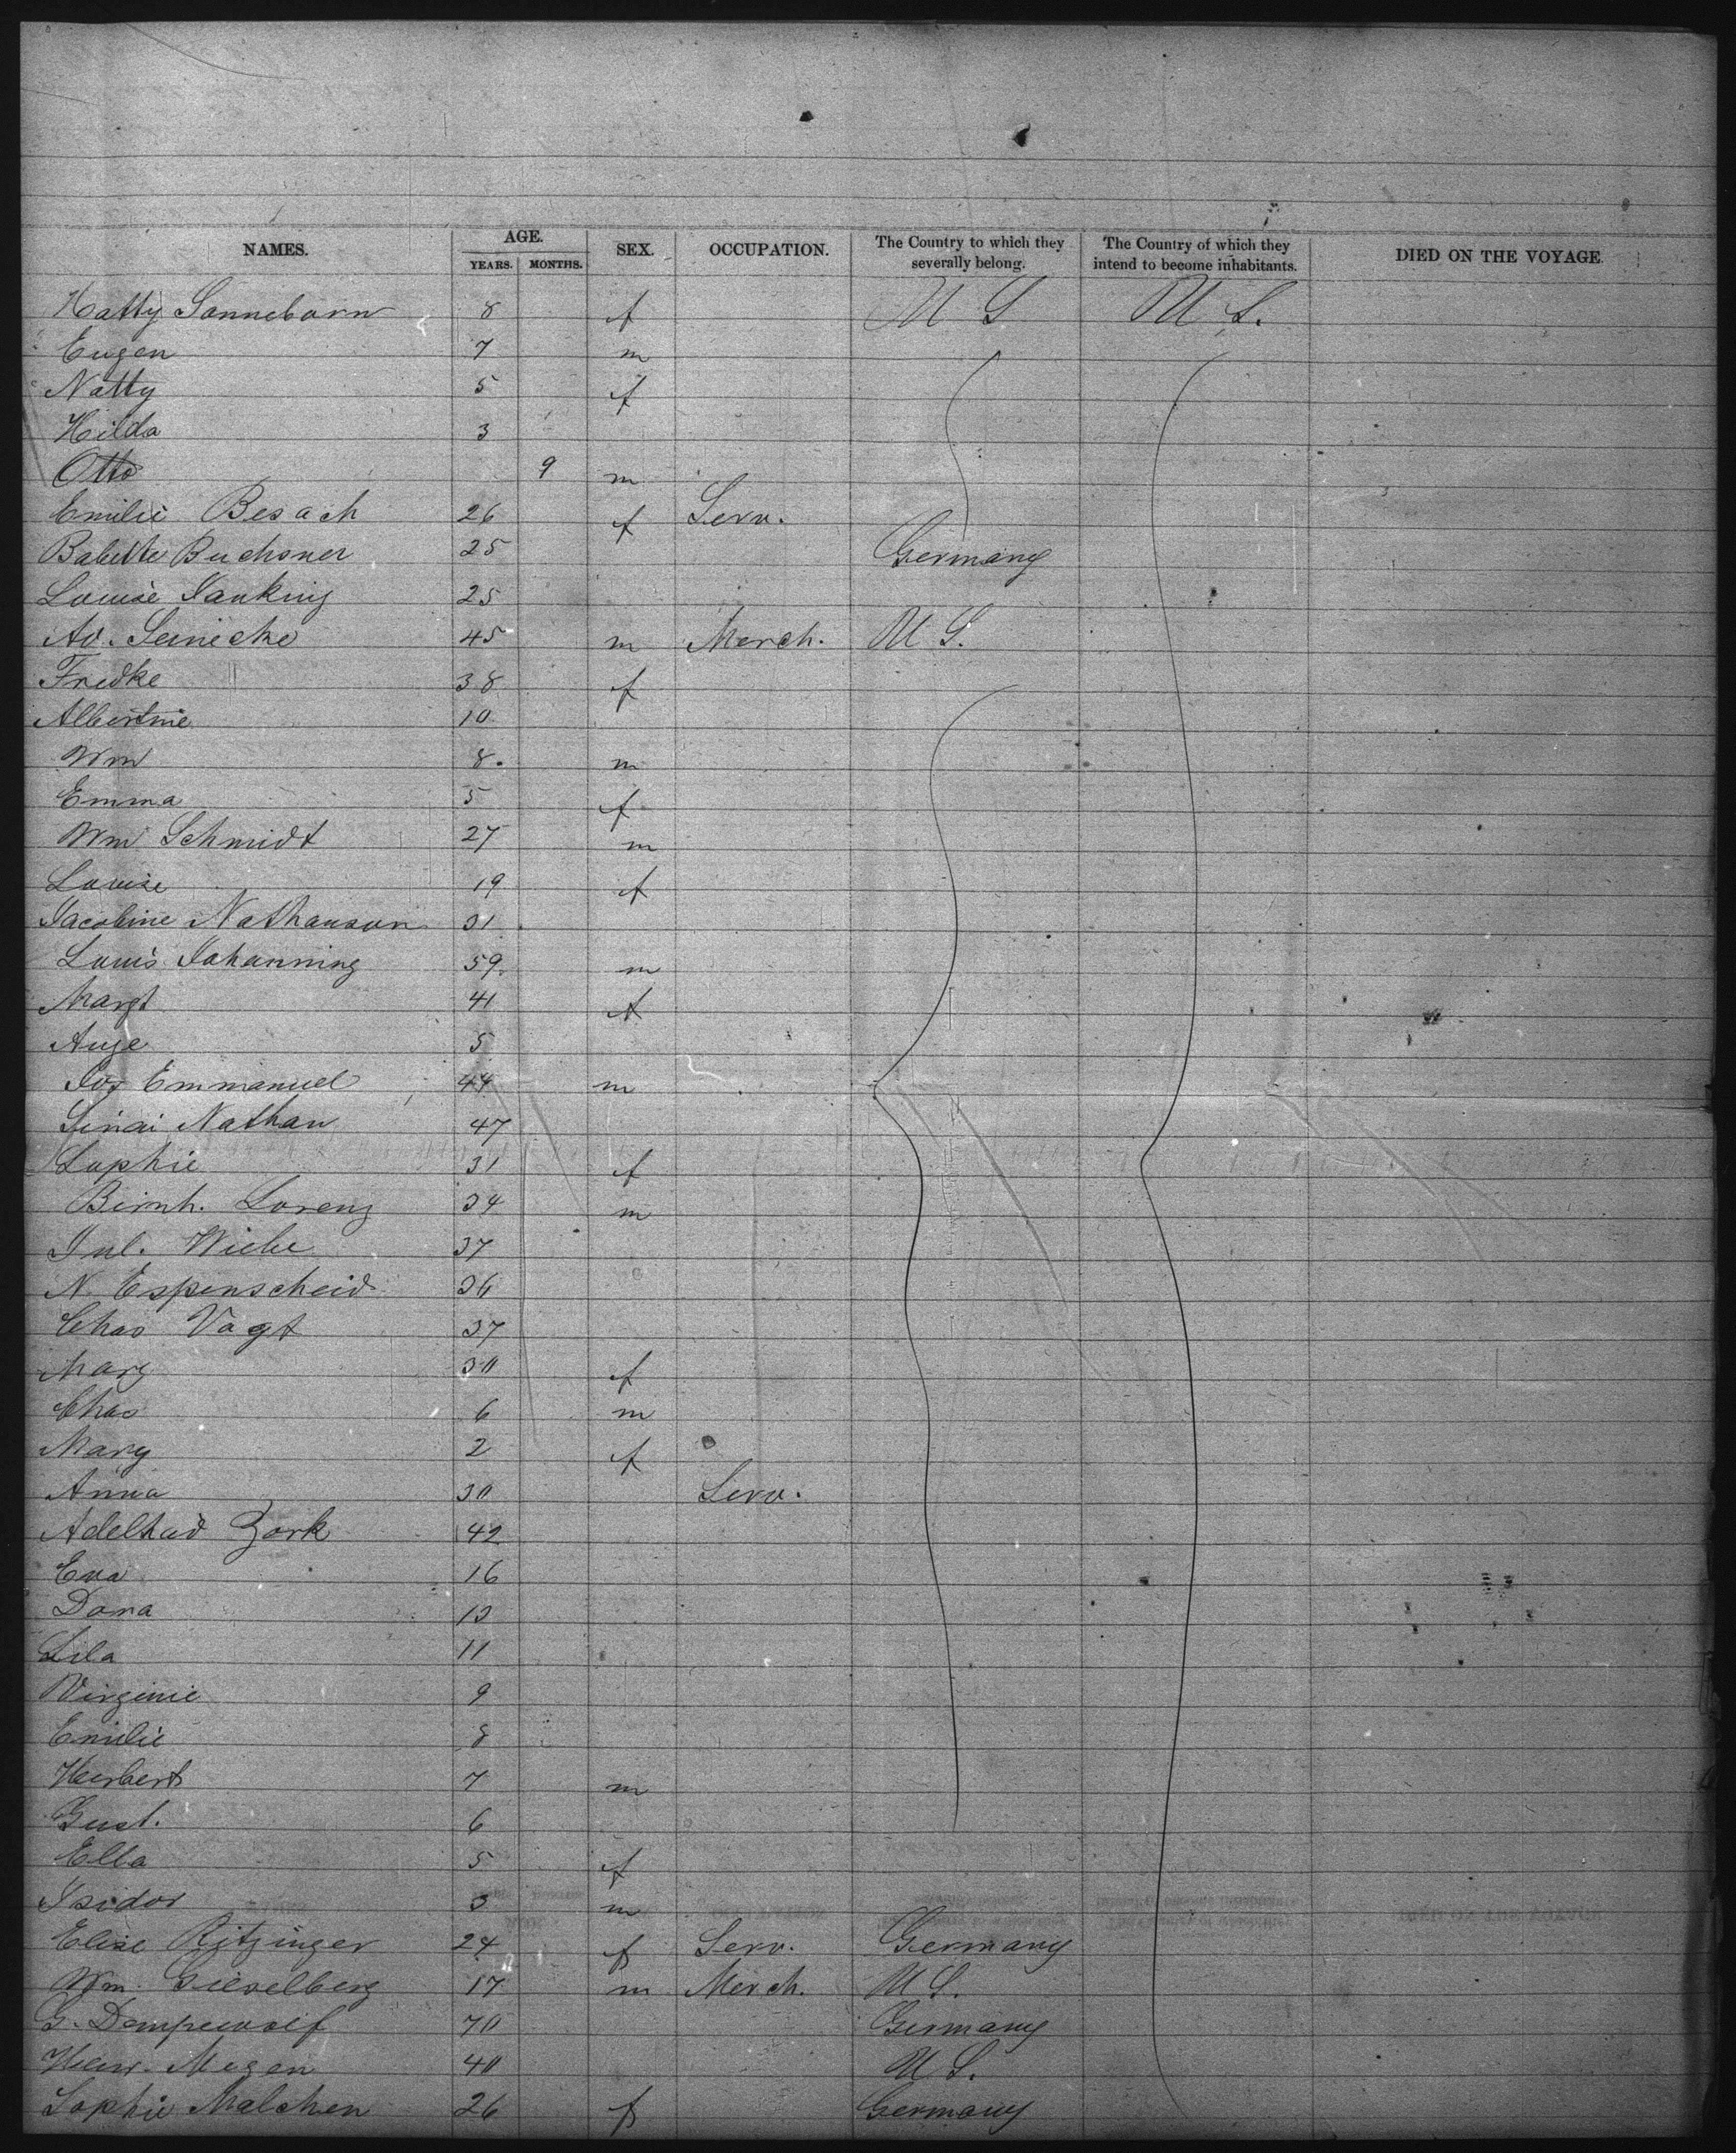 NAMES. AGE. SEX. OCCUPATION. The Country to which they severally belong. The Country of which they intend to become inhabitants. DIED ON THE VOYAGE.
YEARS. MONTHS.
Hatty Sonneborn 8 f U S U S.
Eugen 7 m
Natty 5 f
Hilda 3
Otto 9 m
Emilie Besach 26 f Serv.
Babette Buchsner 25 Germany
Louise Janking 25
Ad. Leinecke 45 m Merch. U S.
Fredke 38 f
Albertine 10
Wm 8. m
Emma 5 f
Wm Schmidt 27 m
Louise 19 f
Jacobine Nathanson 31
Louis Johanning 59. m
Margt 41 f
Auge 5
Jos Emmanuel 44 m
Sinai Nathan 47
Sophie 31 f
Bernh. Lorenz 34 m
Jul. Wiebe 37
N. Espenscheid 36
Chas Vogt 37
Mary 30 f
Chas 6 m
Mary 2 f
Anna 30 Serv.
Adelhaid Zork 42
Eva 16
Dora 13
Lila 11
Virginie 9
Emilie 8
Herbert 7 m
Gust. 6
Ella 5 f
Isidor 3 m
Elise Ritzinger 24 f Serv. Germany
Wm. Gieselberg 17 m Merch. U S.
G. Dempewolf 70 Germany
Henr. Megen 40 U S.
Sophie Malchen 26 f Germany